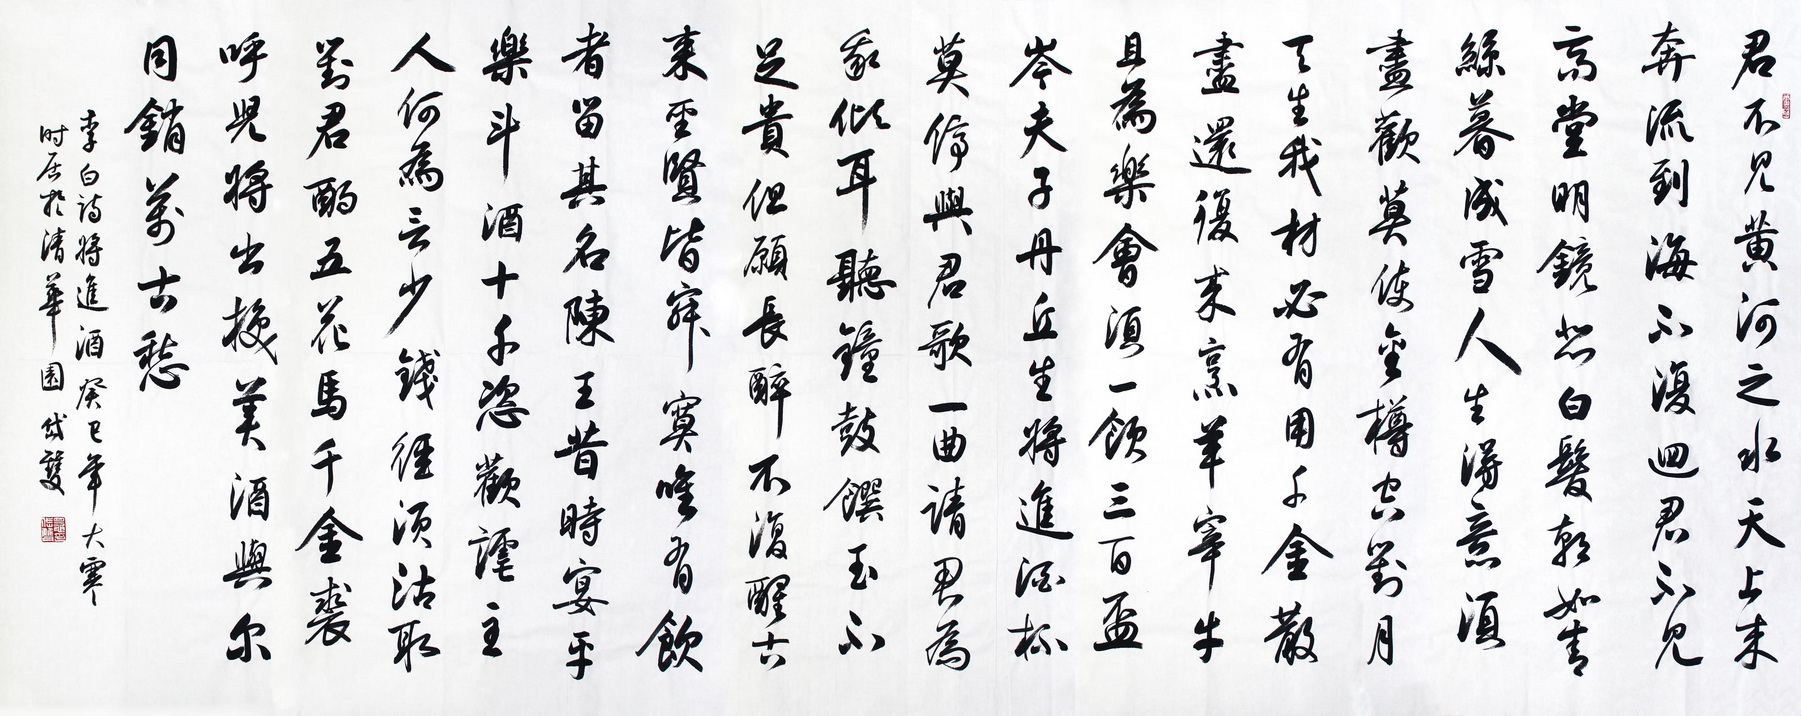 君不見黃河之水天上来
奔流到海不復迴君不見
高堂明鏡悲白髮朝如青
絲暮成雪人生得意須
盡歡莫使金樽空對月
天生我材必有用千金散
盡還復来烹羊宰牛
且為樂會須一飲三百盃
岑夫子丹丘生將進酒杯
莫停與君歌一曲請君為
我傾耳聽鐘鼓饌玉不
足貴但願長醉不復醒古
来聖賢皆寂寞唯有飲
者留其名陳王昔時宴平
樂斗酒十千恣歡謔主
人何為言少錢徑須沽取
對君酌五花馬千金裘
呼兒將出換美酒與尔
同銷萬古愁
李白詩將進酒癸巳年大雪
时居於清華園岱